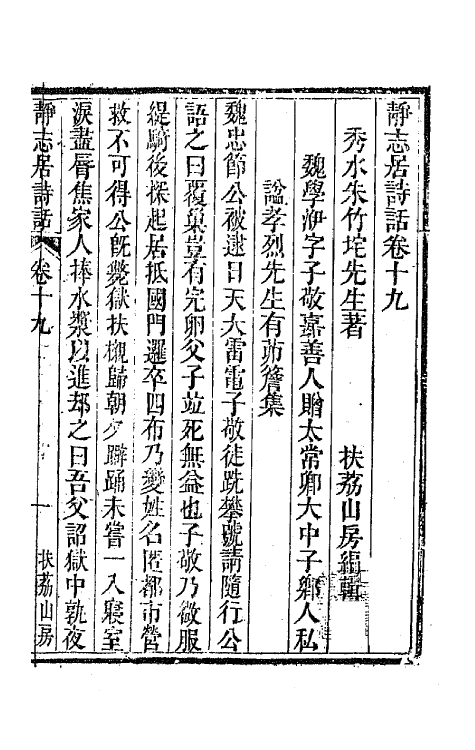 靜志居詩話卷十九
秀水朱竹垞先生著 扶荔山房編輯
魏學洢字子敬嘉善人贈太常卿大中子鄉人私
諡孝烈先生有茅簷集
魏忠節公被逮日天大雷電子敬徒跣攀號請隨行公
語之曰覆巢豈有完卵父子竝死無益也子敬乃微服
緹騎後探起居抵國門邏卒四布乃變姓名匿都市營
救不可得公旣斃獄扶櫬歸朝夕躃踊未嘗一入寢室
淚盡脣焦家人捧水漿以進却之曰吾父詔獄中孰夜
靜志居詩話 卷十九 一 扶荔山房